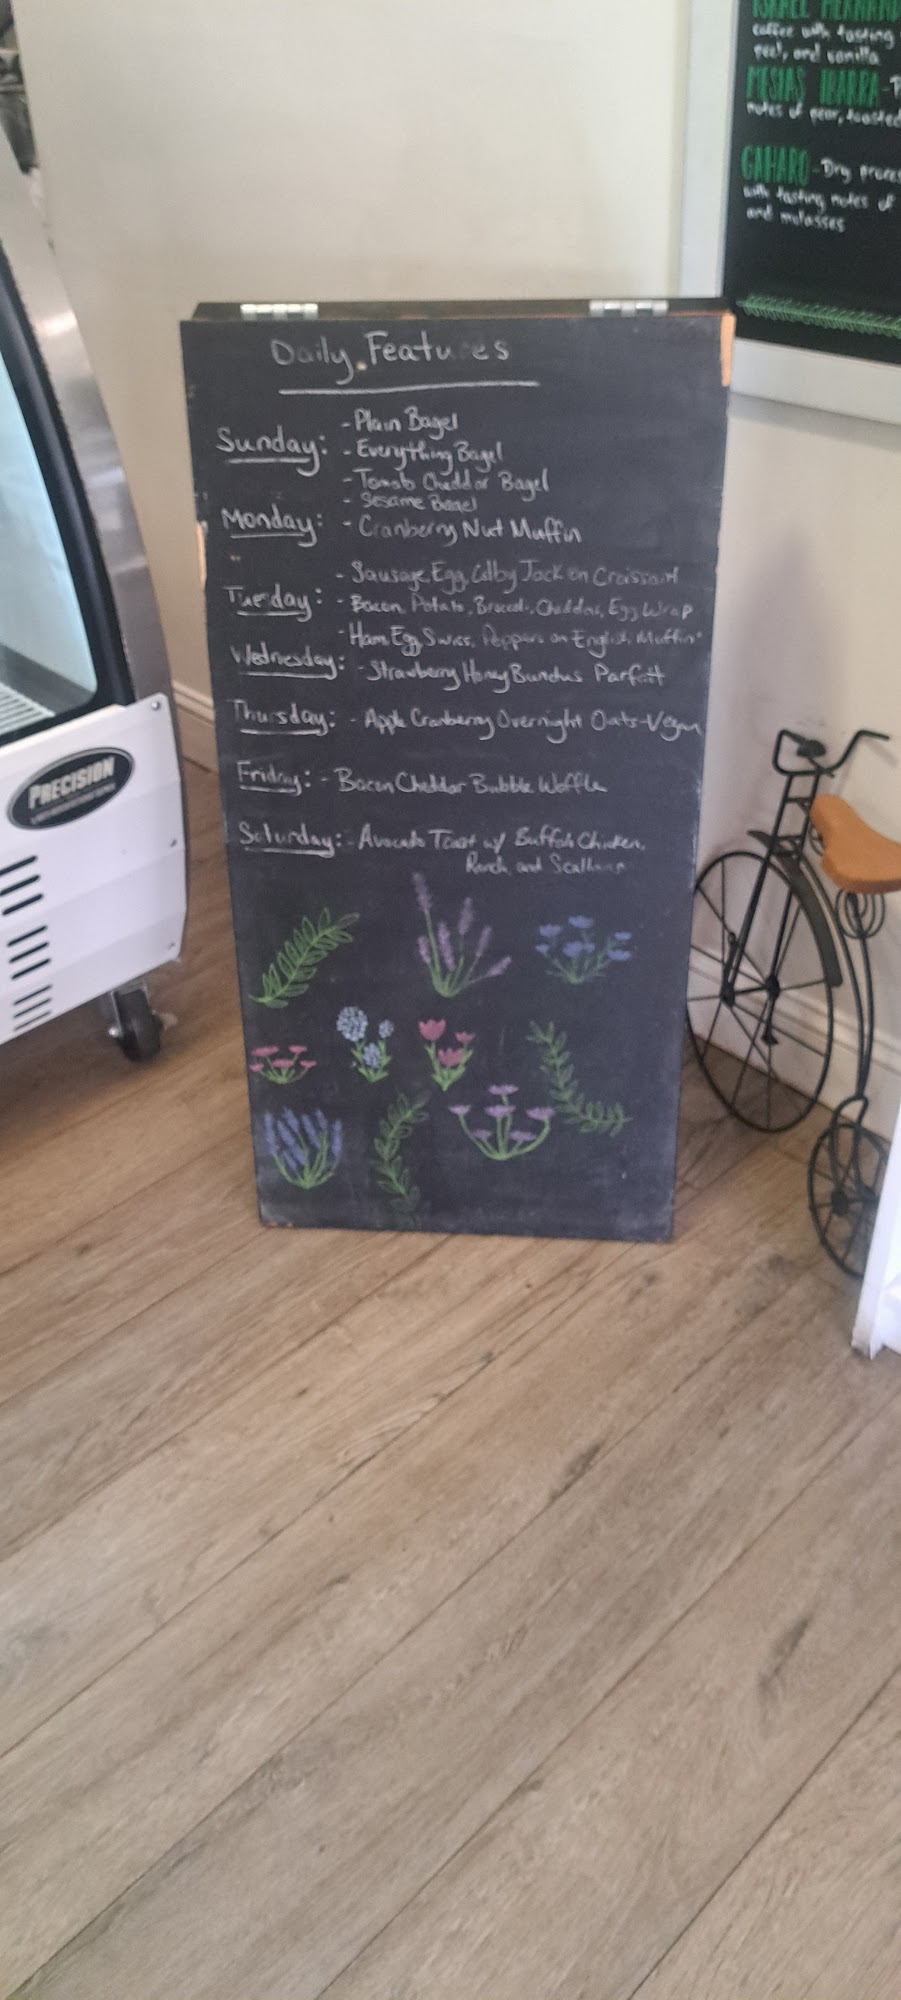 Daily Features
- Plain Bagel
Sunday: - Everything Bagel
- Tomato Cheddar Bagel
- Sesame Bagel
Monday: - Cranberry Nut Muffin
- Sausage, Egg, Colby Jack on Croissant
Tuesday: - Bacon, Potato, Broccoli, Cheddar, Egg Wrap
- Ham, Egg, Swiss, Peppers on English Muffin
Wednesday: - Strawberry Honey Bunches Parfait
Thursday: - Apple Cranberry Overnight Oats-Vegan
Friday: - Bacon Cheddar Bubble Waffle
Saturday: - Avocado Toast w/ Buffalo Chicken,
Ranch, and Scallions
PRECISION
coffee with tasting
peel, and vanilla
MESIAS IBARRA -
notes of pear, toasted
GAHARO - Dry
with tasting notes of
and molasses